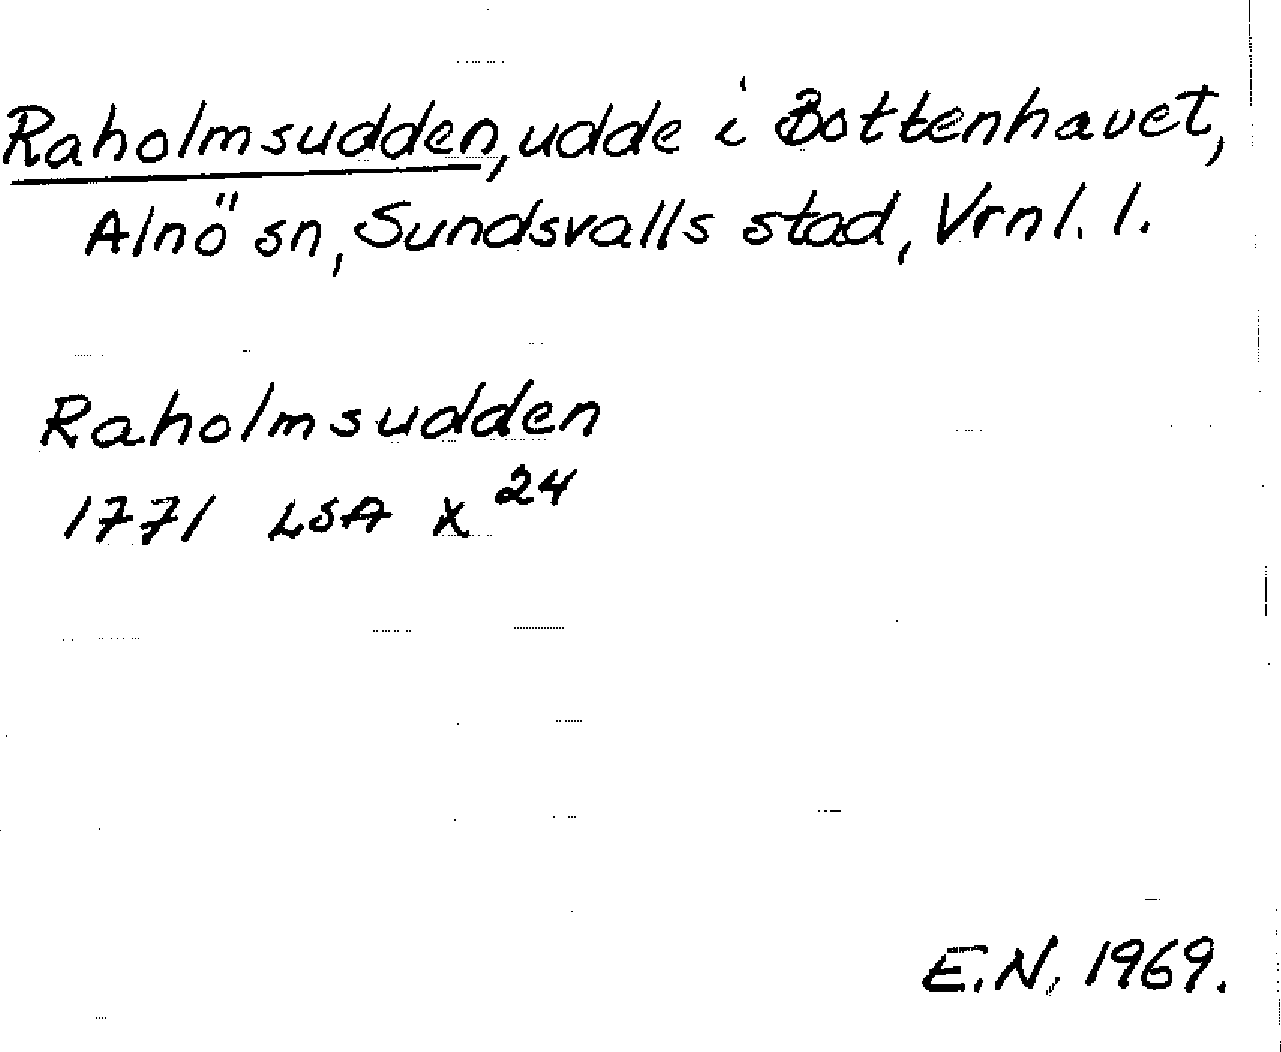 Raholmsudden, udde i Bottenhavet,
Alnö sn, Sundsvalls stad, Vrnl. l.
Raholmsudden
1771 LSA X 24
E.N. 1969.